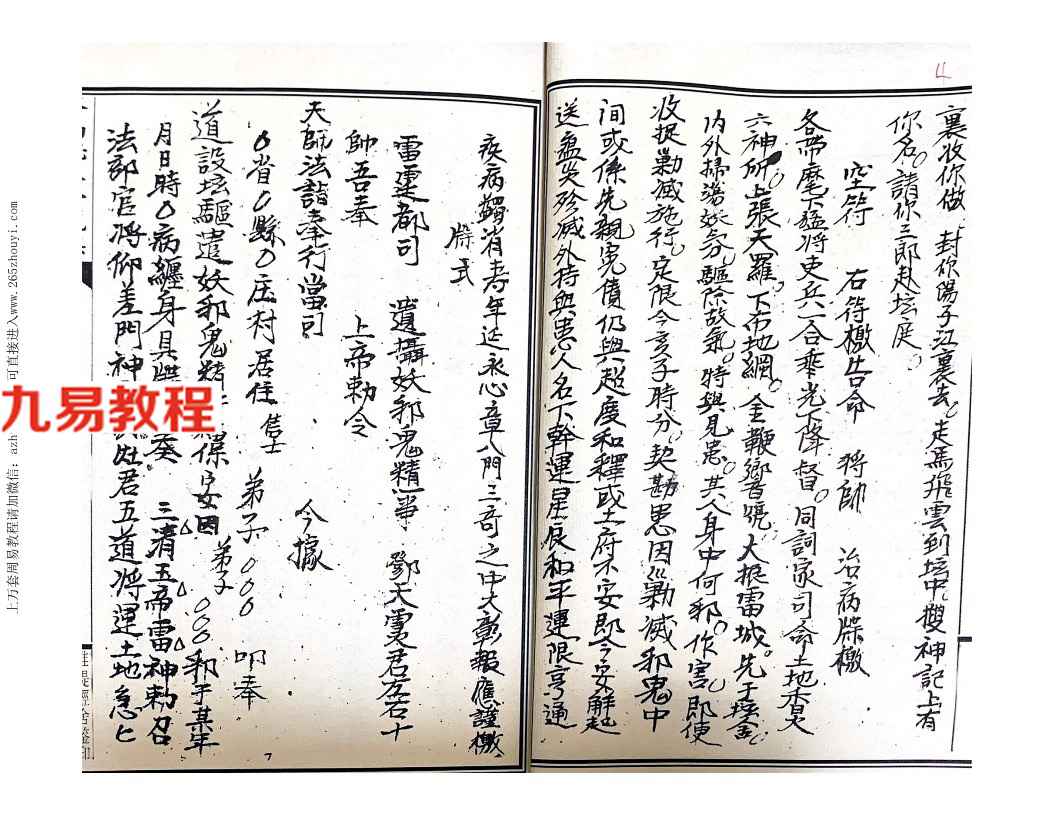 4
裏收你做 封你陽子江裏去 走馬飛雲到坛中 搜神記上有
你名 請你三郎赴坛庭
空符 右符檄告命 将帥 治病牒檄
各帶麾下猛将吏兵一合乘光下降督 同詞家司命土地香火
六神所上張天羅 下布地網 金鞭響號 大振雷城 先于坛舍
内外掃蕩妖氛 驅除故氣 特與見患 其人身中何邪 作害 即便
收捉勦滅施行 定限今亥子時分 契勘患因 勦滅邪鬼中
间或係先親冤債仍與超度和釋或土府不安即今安觧起
送盡災殄滅外持與患人名下幹運星辰和平運限亨通
疾病蠲消寿年延永心章八門三奇之中大彰報應謹檄
牒式
雷霆都司 遣攝妖邪鬼精事 鄧天君左右十
帥吾奉 上帝勅令
天師法語奉行當司 今據
0省0縣0庄村居住 信士 弟子000 叩奉
道設坛驅遣妖邪鬼精 保安因 弟子000邪于某年
月日時0病纏身具 奏 三清玉帝雷神勅召
法部官将仰差門神 灶君五道将運土地急匕
九易教程
上万套周易教程请加微信：azh 可直接进入www.265zhouyi.com